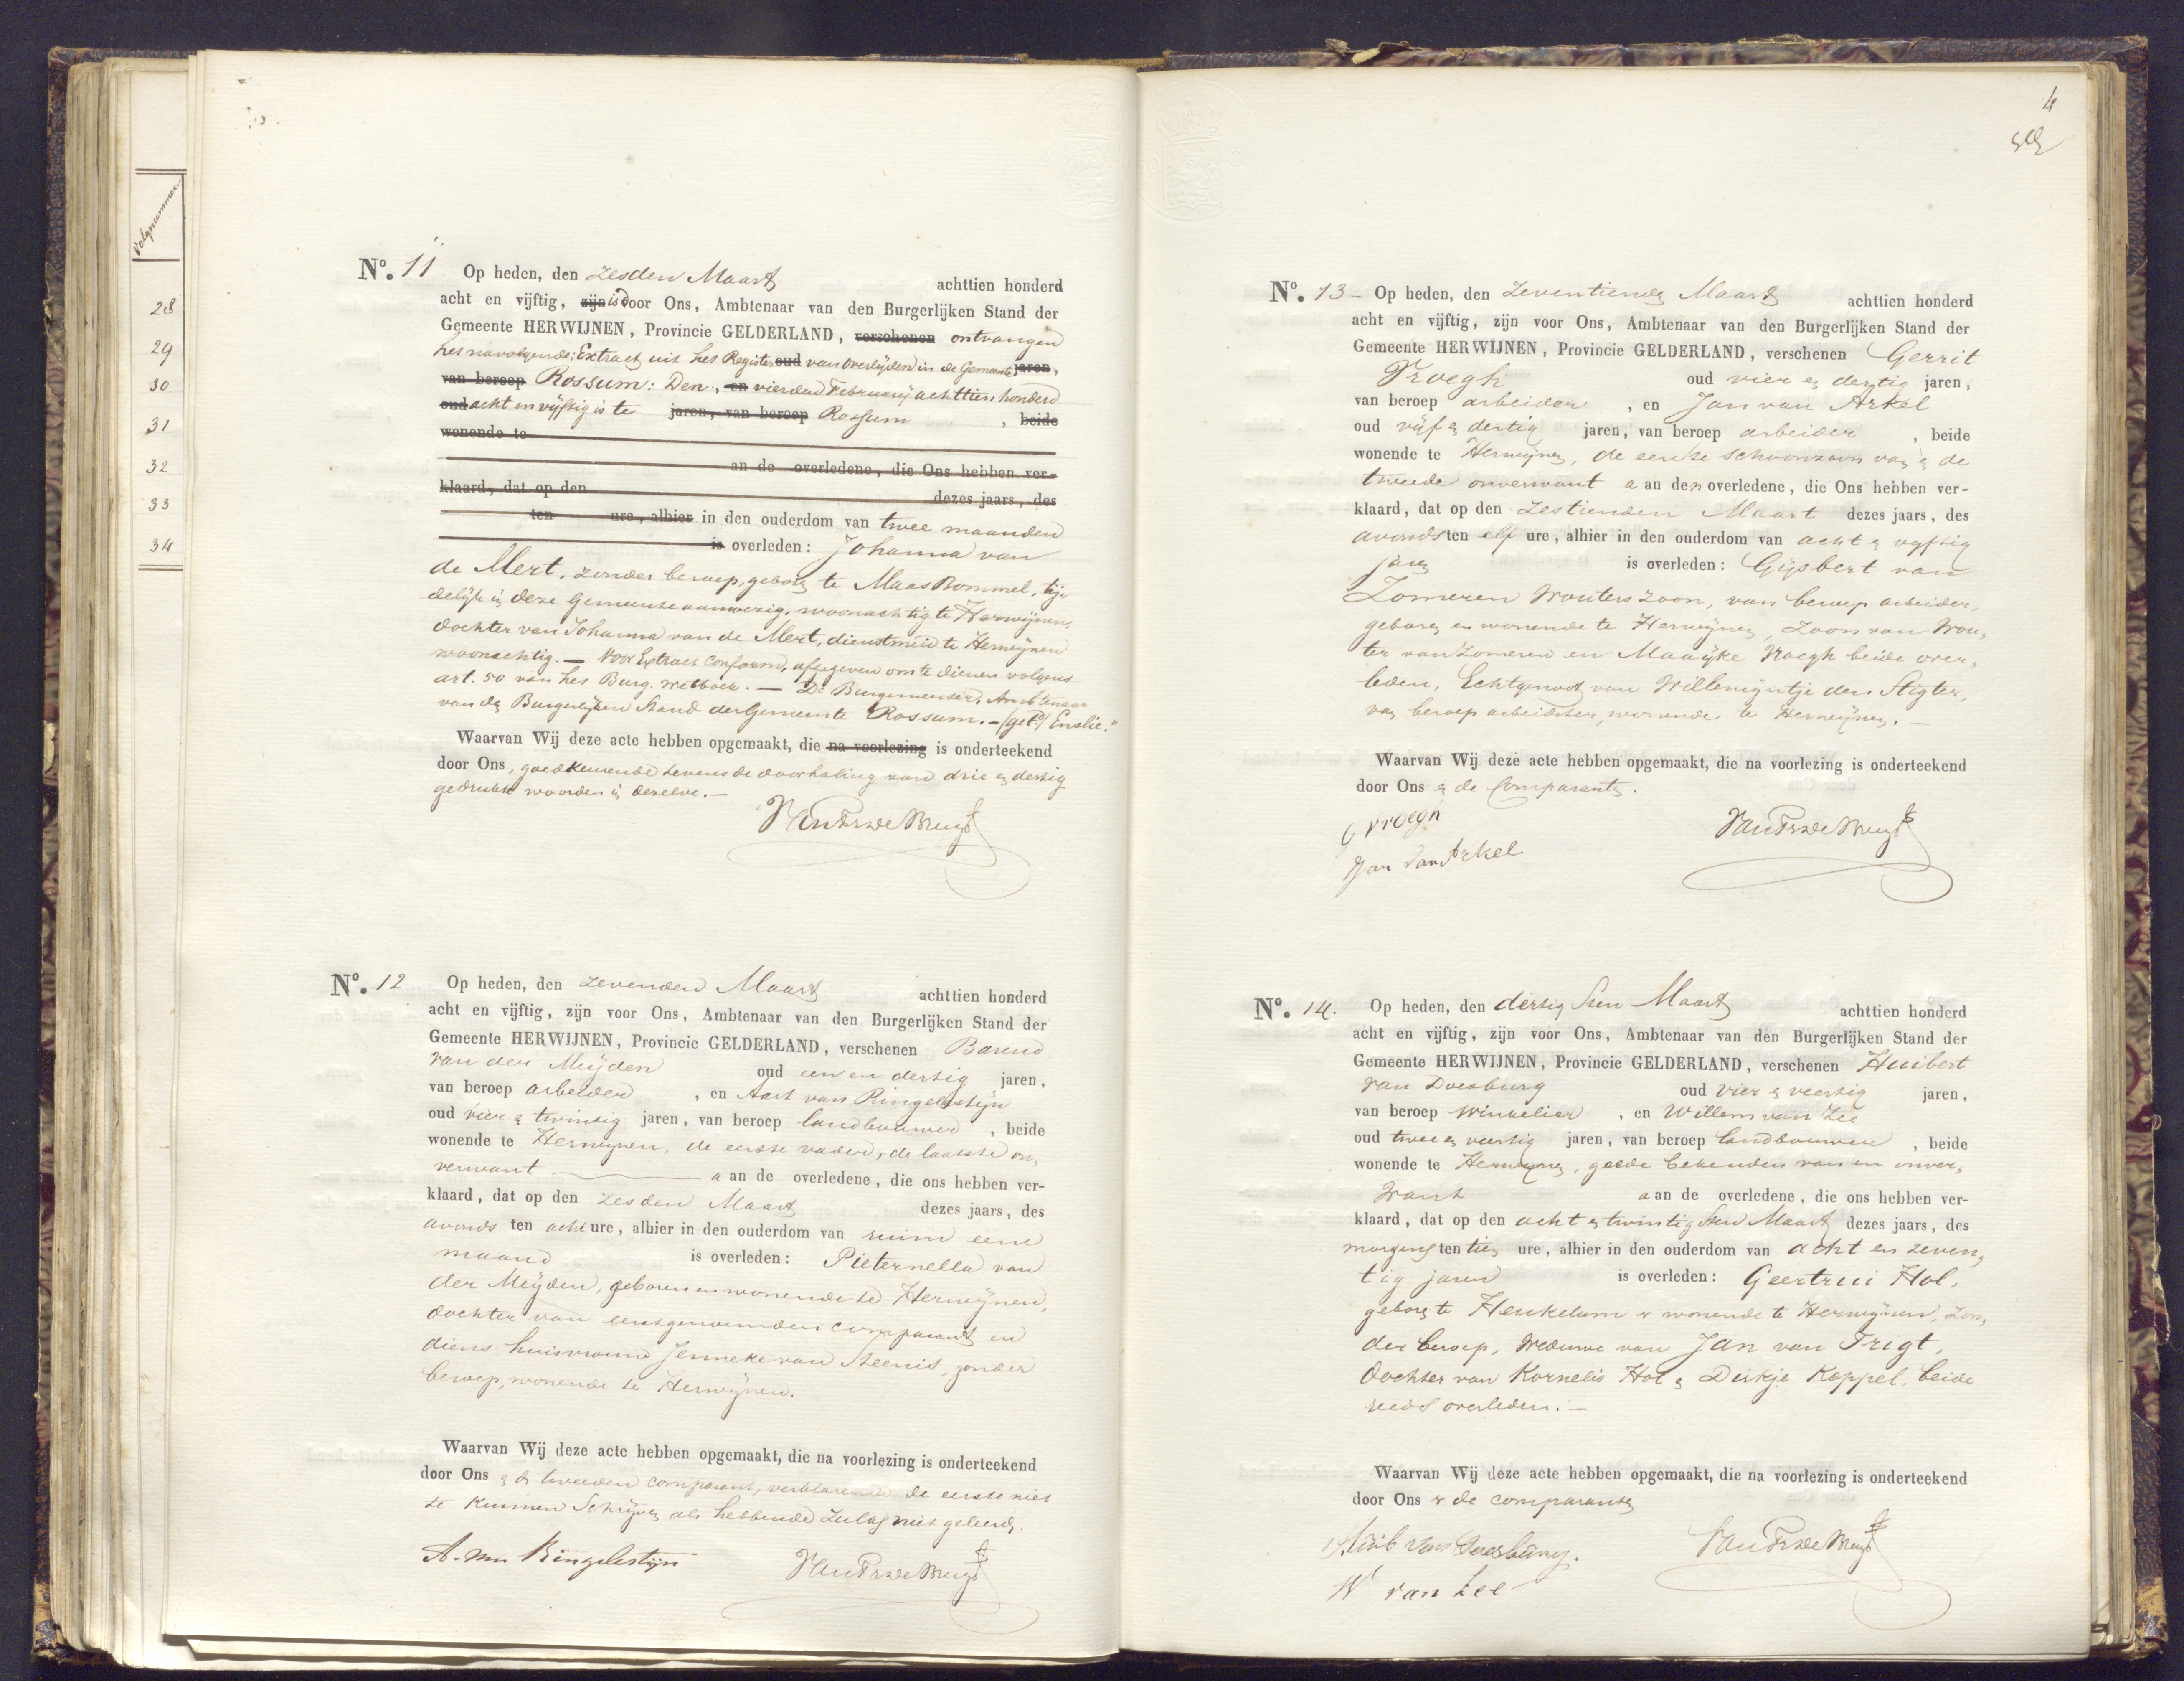 Volgnummer.
28
29
30
31
32
33
34
Nº. 11 Op heden, den zesden Maart achttien honderd
acht en vijftig, zijn is door Ons, Ambtenaar van den Burgerlijken Stand der
Gemeente HERWIJNEN, Provincie GELDERLAND, verschenen ontvangen
het navolgende: Extract uit het Register oud van overlijden in de Gemeente jaren,
van beroep Rossum: Den, en vierden February achttien honderd
oud acht en vijftig is te jaren, van beroep Rossum , beide
wonende te
an de overledene, die Ons hebben ver-
klaard, dat op den dezes jaars, des
ten ure, alhier in den ouderdom van twee maanden
is overleden: Johanna van
de Mert, zonder beroep, geboren te Maas Bommel, tij„
delijk in deze Gemeente aanwezig, woonachtig te Herwijnen,
dochter van Johanna van de Mert, dienstmeid te Herwijnen
woonachtig. — Voor Extract conform, afgegeven om te dienen volgens
art. 50 van het Burg. Wetboek. — De Burgemeester, Ambtenaar
van den Burgerlijken Stand der Gemeente Rossum. — (getd.)
Waarvan Wij deze acte hebben opgemaakt, die na voorlezing is onderteekend
door Ons, goedkeurende tevens de doorhaling van drie en dertig
gedrukte woorden in dezelve. —
Nº. 12 Op heden, den zevenden Maart achttien honderd
acht en vijftig, zijn voor Ons, Ambtenaar van den Burgerlijken Stand der
Gemeente HERWIJNEN, Provincie GELDERLAND, verschenen Barend
van der Meijden oud een en dertig jaren,
van beroep arbeider , en Aart van Ringelestijn
oud vier en twintig jaren, van beroep landbouwer , beide
wonende te Herwijnen, de eerste vader, de laatste on„
verwant a an de overledene, die ons hebben ver-
klaard, dat op den zesden Maart dezes jaars, des
avonds ten acht ure, alhier in den ouderdom van ruim eene
maand is overleden: Pieternella van
der Meijden, geboren en wonende te Herwijnen,
dochter van eerstgenoemden comparant en
diens huisvrouw Jenneke van Steenis, zonder
beroep, wonende te Herwijnen.
Waarvan Wij deze acte hebben opgemaakt, die na voorlezing is onderteekend
door Ons en de tweeden comparant, verklarende de eerste niet
te kunnen schrijven als hebbende zulks niet geleerd.
A. van Ringelestijn
4
Nº. 13 - Op heden, den zeventienden Maart achttien honderd
acht en vijftig, zijn voor Ons, Ambtenaar van den Burgerlijken Stand der
Gemeente HERWIJNEN, Provincie GELDERLAND, verschenen Gerrit
Vroegh oud vier en dertig jaren,
van beroep arbeider , en Jan van Arkel
oud vijf en dertig jaren, van beroep arbeider , beide
wonende te Herwijnen, de eerste schoonzoon van en de
tweede onverwant a an den overledene, die Ons hebben ver-
klaard, dat op den zestienden Maart dezes jaars, des
avonds ten elf ure, alhier in den ouderdom van acht en vyftig
jaren is overleden: Gijsbert van
Zomeren Wouters zoon, van beroep arbeider,
geboren en wonende te Herwijnen, zoon van Wou„
ter van Zomeren en Maaijke Vroegh beide over„
leden, Echtgenoot van Willemijntje den Stigter,
van beroep arbeidster, wonende te Herwijnen. —
Waarvan Wij deze acte hebben opgemaakt, die na voorlezing is onderteekend
door Ons en de Comparanten.
G vroegh
Jan van Arkel
Nº. 14. Op heden, den dertigsten Maart achttien honderd
acht en vijftig, zijn voor Ons, Ambtenaar van den Burgerlijken Stand der
Gemeente HERWIJNEN, Provincie GELDERLAND, verschenen Huibert
van Doesburg oud vier en veertig jaren,
van beroep winkelier , en Willem van Zee
oud twee en veertig jaren, van beroep landbouwer , beide
wonende te Herwijnen, goede bekenden van en onver„
want a an de overledene, die ons hebben ver-
klaard, dat op den acht en twintigsten Maart dezes jaars, des
morgens ten tien ure, alhier in den ouderdom van acht en zeven„
tig jaren is overleden: Geertrui Hol,
geboren te Heukelum en wonende te Herwijnen, zon„
der beroep, Weduwe van Jan van Trigt,
Dochter van Kornelis Hol en Dirkje Koppel, beide
reeds overleden. —
Waarvan Wij deze acte hebben opgemaakt, die na voorlezing is onderteekend
door Ons en de comparanten
Huib van Doesburg.
W van Zee